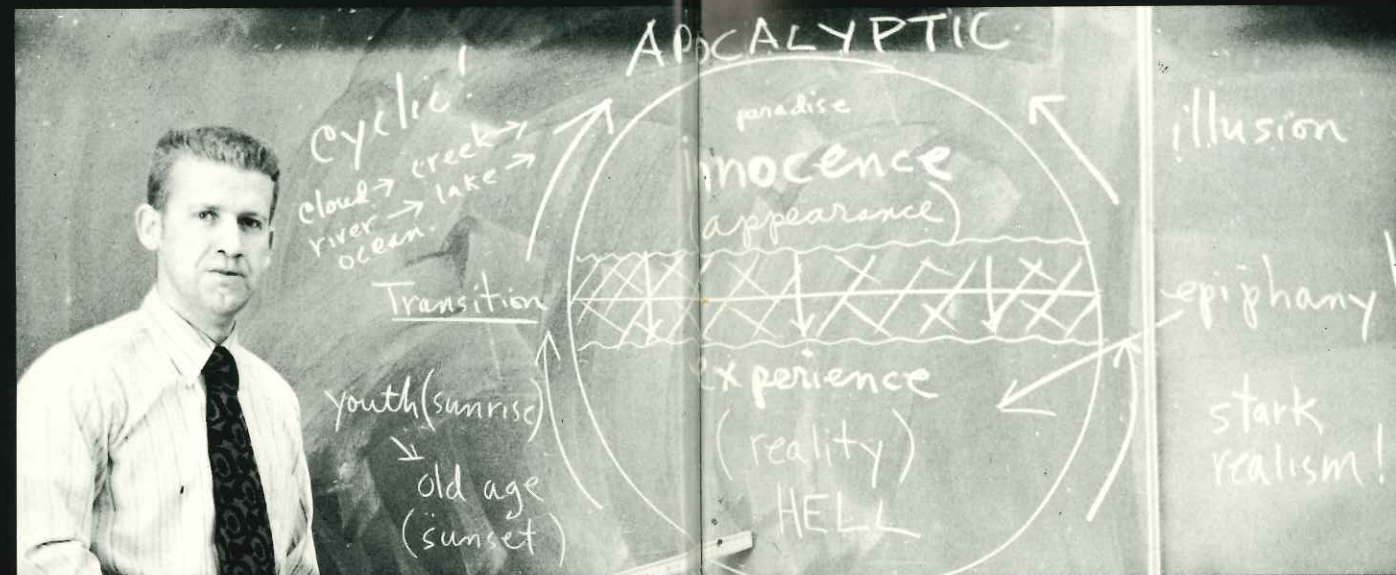 APOCALYPTIC
cyclic!
cloud → creek →
river → lake →
ocean.
Transition
youth (sunrise)
↘
old age
(sunset)
paradise
innocence
(appearance)
experience
(reality)
HELL
illusion
epiphany
stark
realism!